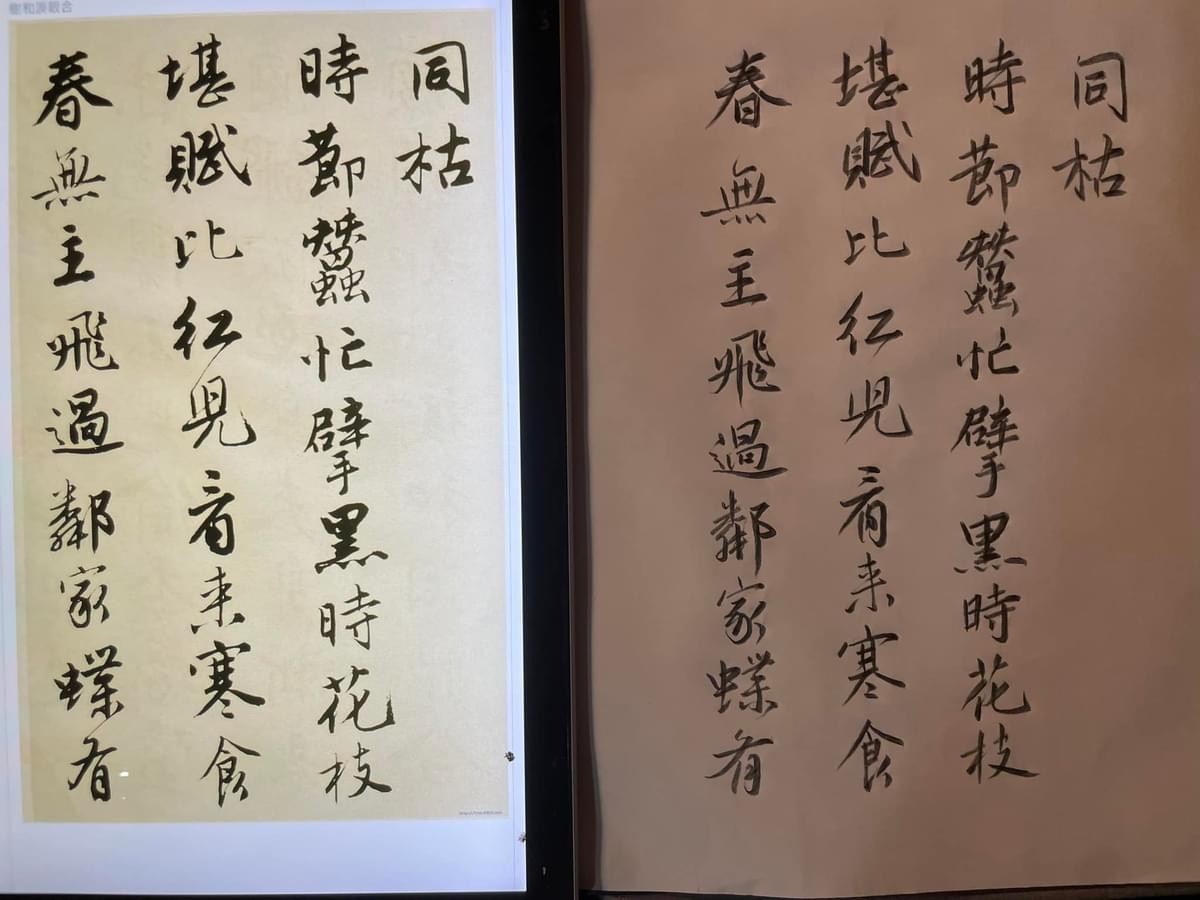 同枯
時莭蠶忙擘黑時花枝
堪賦比紅兒看来寒食
春無主飛過鄰家蝶有
同枯
時莭蠶忙擘黑時花枝
堪賦比紅兒看来寒食
春無主飛過鄰家蝶有